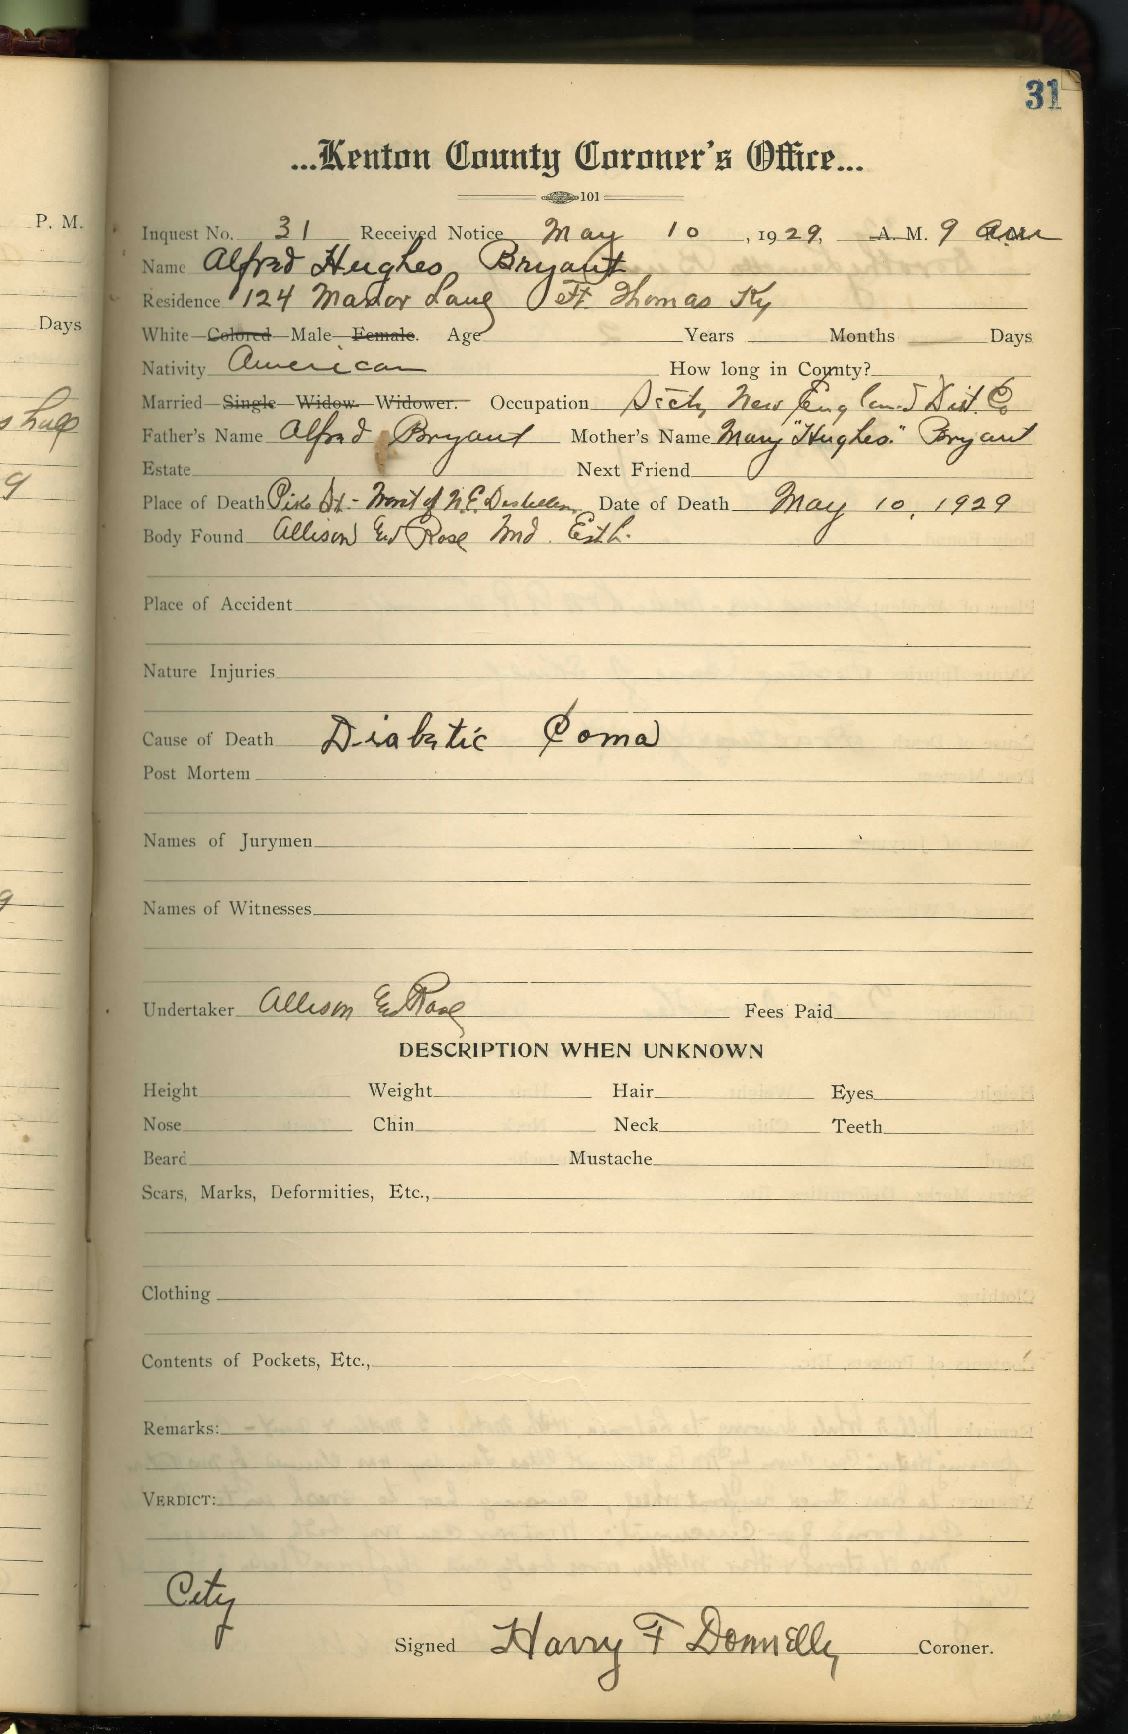 31
...Kenton County Coroner's Office...
101
P. M.
Inquest No. 31 Received Notice May 10, 1929, A. M. 9 am
Name Alfred Hughes Bryant
Residence 124 Manor Lane Ft. Thomas Ky
Days
White Colored Male Female. Age Years Months Days
Nativity American How long in County?
Married Single Widow Widower. Occupation Secty New England Dist. Co
Father's Name Alfred Bryant Mother's Name Mary "Hughes" Bryant
Estate Next Friend
9
Place of Death Pike St - Front of N.E. Distillery Date of Death May 10, 1929
Body Found Allison and Rose Und. Est.
Place of Accident
Nature Injuries
Cause of Death Diabetic Coma
Post Mortem
Names of Jurymen
Names of Witnesses
Undertaker Allison and Rose Fees Paid
DESCRIPTION WHEN UNKNOWN
Height Weight Hair Eyes
Nose Chin Neck Teeth
Beard Mustache
Scars, Marks, Deformities, Etc.,
Clothing
Contents of Pockets, Etc.,
Remarks:
VERDICT:
City
Signed Harry F Donnelly Coroner.